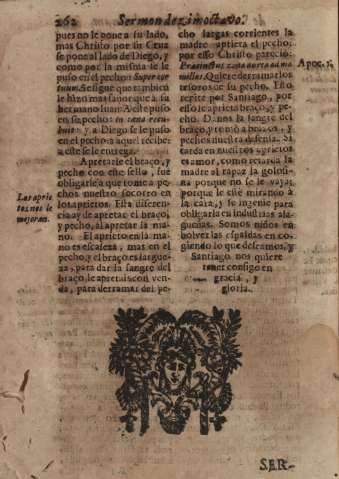 262 Sermon dezimoctavo.
pues no le pone a su lado,
mas Christo por su Cruz
se pone al lado de Diego, y
como por la misma se le
puso en el pecho: Super cor
tuum. Se sigue que tambiẽ
le hizo mas favor que a su
hermano Iuan: A este puso
en su pecho: in cœna recu-
buit: y a Diego se le puso
en el pecho: a aquel recibe:
a este se le entrega.
Apretarle el braço, y
pecho con este sello, fue
obligarle a que tome a pe-
chos nuestro socorro en
los aprietos. Esta diferen-
cia ay de apretar el braço,
y pecho, al apretar la ma-
no. El apretarse en la ma-
no es escaseza, mas en el
pecho, y el braço es largue-
za, para dar la sangre del
braço le aprietais con ven-
da, para derramar del pe-
Las aprie
tos nos le
mejoran.
cho largas corrientes la
madre aprieta el pecho:
por esso Christo parecio:
Præcinctus zona aurea ad ma
millas. Quiere derramar los
tesoros de su pecho. Esto
repite por Santiago, por
esso le aprieta braço, y pe-
cho. Danos la sangre del
braço, tomó a braços, y
pechos nuestra defensa. Si
tarda en nuestros aprietos
es amor, como retarda la
madre al rapaz la golosi-
na porque no se le vaya,
porque le esté mirando à
la cara, y se ingenie para
obligarla en industrias ala-
gueñas. Somos niños en
bolver las espaldas en co-
giendo lo que deseamos, y
Santiago nos quiere
tener consigo en
gracia, y
gloria.
Apoc. 1.
SER-